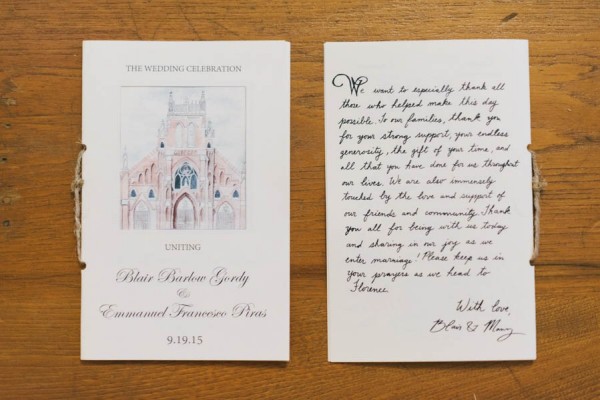 THE WEDDING CELEBRATION
UNITING
Blair Barlow Gordy
&
Emmanuel Francesco Piras
9.19.15
We want to especially thank all
those who helped make this day
possible. To our families, thank you
for your strong support, your endless
generosity, the gift of your time, and
all that you have done for us throughout
our lives. We are also immensely
touched by the love and support of
our friends and community. Thank
you all for being with us today
and sharing in our joy as we
enter marriage! Please keep us in
your prayers as we head to
Florence.
With love,
Blair & Manny